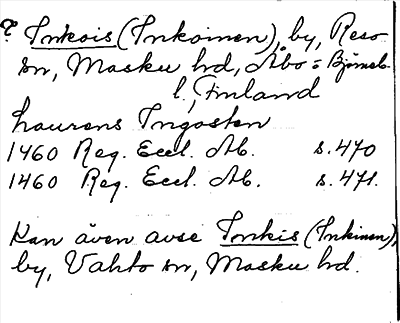 ? Inkois (Inkoinen), by, Reso
sn, Masku hd, Åbo = Björneb.
l., Finland
Laurens Ingosten
1460 Reg. Eccl. Ab. s. 470
1460 Reg. Eccl. Ab. s. 471.
Kan även avse Inkis (Inkinen),
by, Vahto sn, Masku hd.